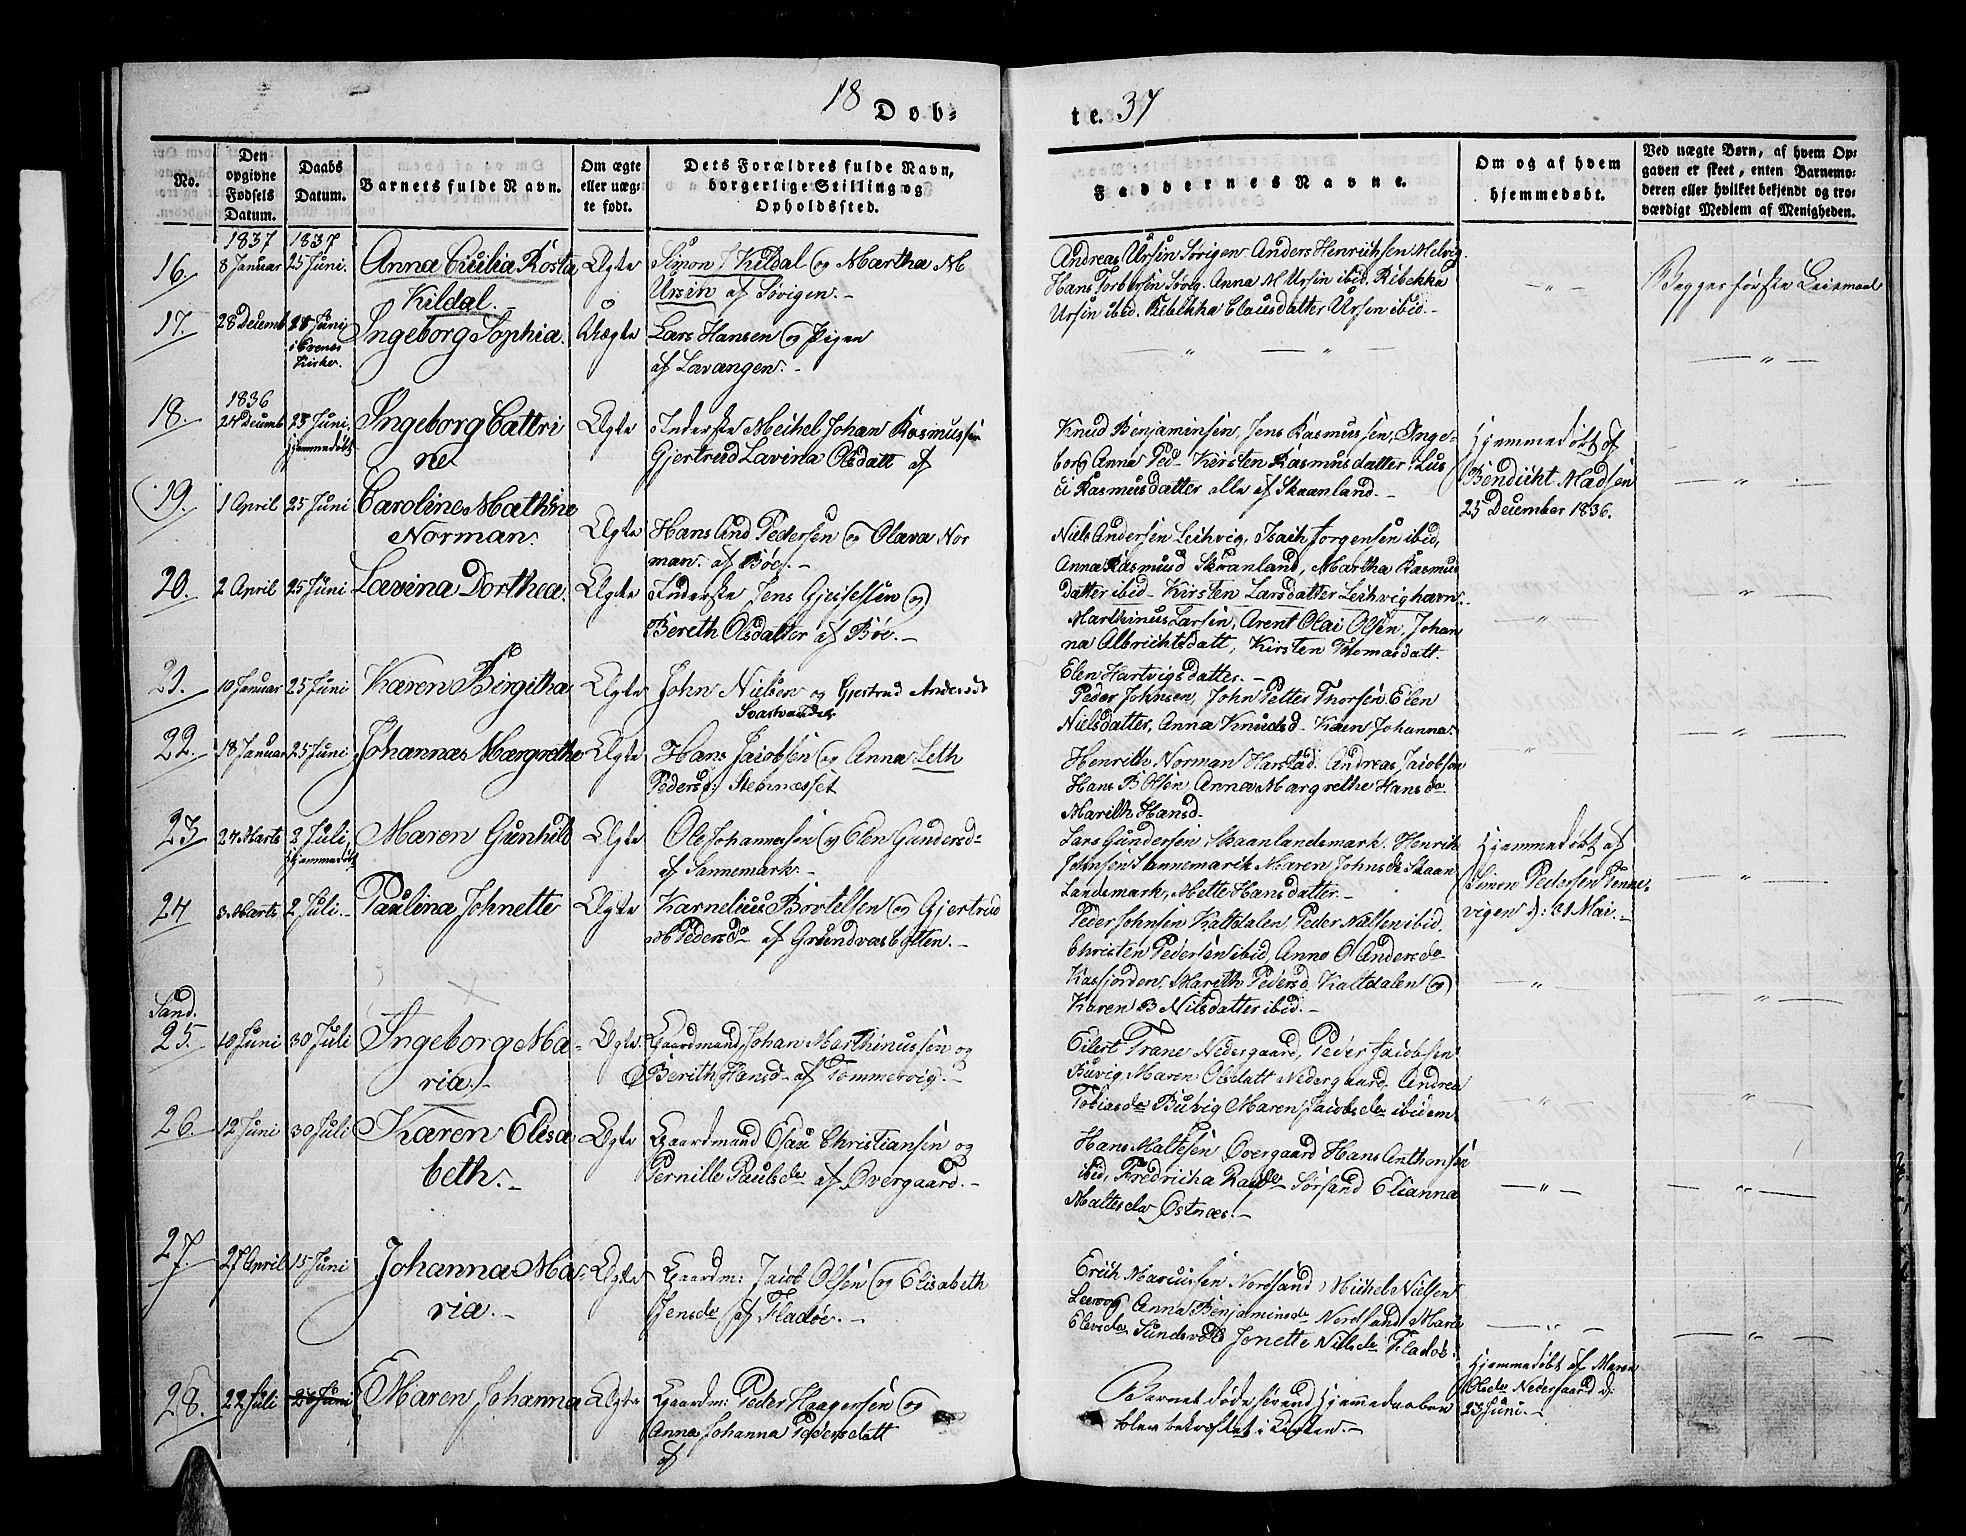 18 Døb-
te. 37
No.
Den opgivne Fødsels Datum.
Daabs Datum.
Barnets fulde Navn.
Om ægte eller uæg-te født.
Dets Forældres fulde Navn, borgerlige Stilling og Opholdssted.
Faddernes Navne.
Om og af hvem hjemmedøbt.
Ved uægte Børn, af hvem Op-gaven er skeet, enten Barnemo-deren eller hvilket bekjendt og tro-værdigt Medlem af Menigheden.
1837 1837
16. 8 Januar 25 Juni. Anna Cicilia Rosta Ægte Simon Kildal og Martha M
Kildal. Ursin af Sørigen.-
Andreas Ursin Sørigen Anders Henrichsen Melvig
Hans Torbersen Sørig. Anna M Ursin ibid. Ribekka
Ursin ibid. Ribekka Clausdatter Ursin ibid.-
-"- Begges første Leiermaal
17. 28 Decemb 24 Juni Ingeborg Sophia. Uægte Lars Hansen og Pigen
i Evenes
Kirke. af Lavangen.-
1836
18. 24 Decemb 25 Juni Ingeborg Cattri Ægte Inderste Meihel Johan Rasmussen
hjemmedøbt ne Gjertrud Lavina Olsdatt af
Knud Benjaminsen, Jens Rasmussen, Inge-
borg Anna Ped- Kirsten Rasmusdatter Lus
ci Rasmusdatter alle af Skaanland.-
Hjemmedøbt af
Bendicht Madsen
25 December 1836.
19. 1 April 25 Juni Caroline Mathine Ægte Hans And Pedersen og Olava Nor
Norman. man. af Bøe.-
Niels Andersen Leihvig, Isach Jørgensen ibid,
Anna Rasmusd Skaanland, Martha Rasmus
datter ibid- Kirsten Larsdatter Leihvighavn.-
20. 2 April 25 Juni Lavina Dorthea. Ægte Inderste Jens Gjertsen og
Bereth Olsdatter af Bøe.-
Marthinus Larsen, Arent Olai Olsen, Johan
na Albrichtsdatt, Kirsten Thomasdatt.
Elen Hartvigsdatter.-
21. 10 Januar 25 Juni Karen Birgitha Ægte John Nielsen og Gjertrud Andersdt
Svartvandet.
Peder Johnsen, John Petter Thorsen Elen
Nielsdatter, Anna Knudsd- Karen Johanna.
22. 18 Januar 25 Juni Johannas Margrethe Ægte Hans Jacobsen og Anna Leth
Pedersd: Stennesset
Henrich Norman Harstad. Andreas Jacobsen
Hans B Olsen Anna Margrethe Hansda
Marith Hansd.
23. 24 Marts 2 Juli, Maren Gunhild Ægte Ole Johannesen og Elen Gundersd-
hjemmedøbt af Sannemark.-
Lars Gundersen Skaanlandsmark. Henrik
Johnsen Sannemark Maren Johnsda Skaan
Landsmark, Mette Hansdatter.-
Hjemmedøbt af
Simon Pedersen Tenne-
vigen d: 31 Mai.-
24 3 Marts 2 Juli.- Paulina Johnette Ægte Karnelius Bortelsen og Gjertrud
Pedersda af Grundvasbotten.-
Peder Johnsen Kaltdalen, Peder Nilsen ibid.
Christen Pedersen ibid, Anne O Andersda
Kasfjorden. Marith Pedersd Kaltdalen og
Karen B Nilsdatter ibid.-
Sand.
25. 10 Juni 30 Juli Ingeborg Ma- Ægte Gaardmand Johan Marthinussen og
ria.- Berith Hansd- af Tømmervig.-
Eilert Trane Nedergaard, Peder Jacobsen
Buvig Maren Olsdatt Nedergaard, Andrea
Tobiasda Buvig Maren Jacobsda ibidem
26. 12 Juni 30 Juli Karen Elisa Ægte Gaardmand Esau Christiansen og
beth.- Pernille Paulsda af Overgaard.-
Hans Maltesen Overgaard Hans Anthonsen
ibid, Fredricha Sørsand Elianna
Maltesda Østnæs.-
27. 27 April 15 Juni Johanna Ma- Ægte Gaardm: Jacob Olsen og Elisabeth
ria.- Jensda af Fladøe.-
Erich Marcussen Nordsand, Michel Nielsen
Anna Benjaminsda Nordsand Maria
Elevsda Jonette Nielsda Fladøe.
28. 22 Juli 26 Juni Maren Johanna Ægte Gaardm: Peder Haagensen og
Anna Johanna Pedersdatt
af
Barnet døde førend hjemmedaaben
blev bekræftet i Kirken.-
hjemmedøbt af Maren
Olsda Nedergaard d:
23 Juni.-